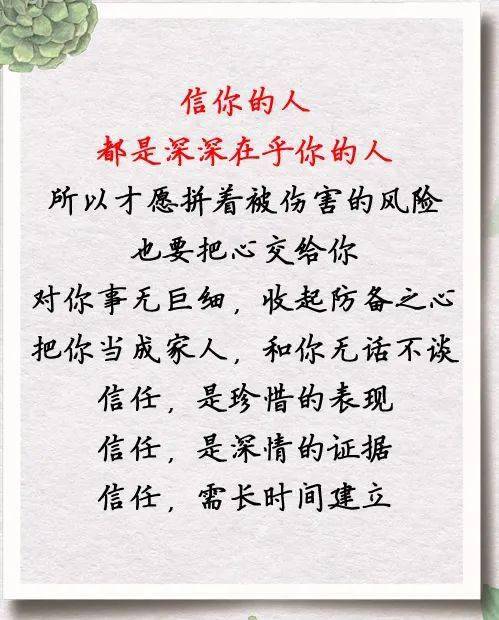 信你的人
都是深深在乎你的人
所以才愿拼着被伤害的风险
也要把心交给你
对你事无巨细，收起防备之心
把你当成家人，和你无话不谈
信任，是珍惜的表现
信任，是深情的证据
信任，需长时间建立